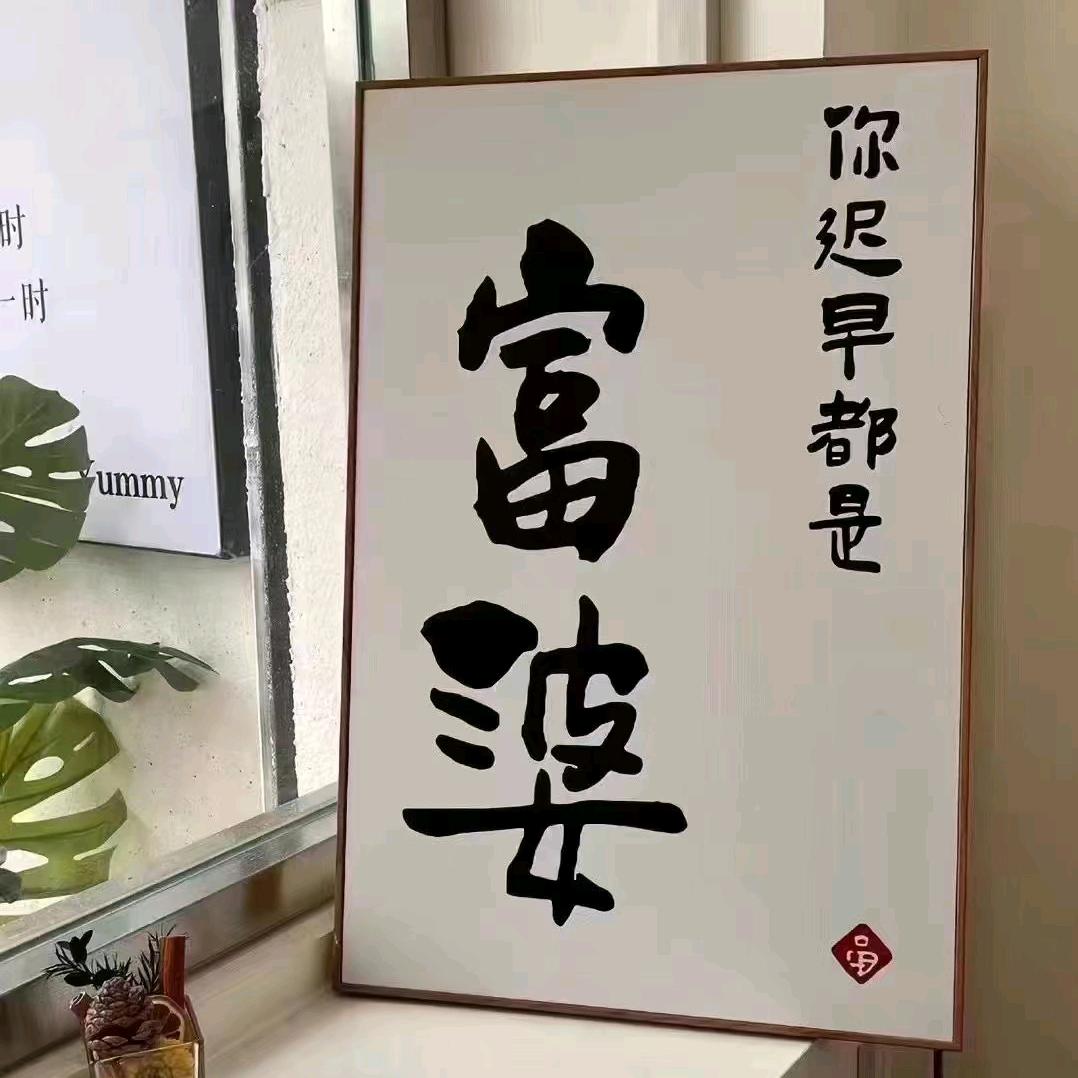 你迟早都是
富婆
时
一时
Yummy